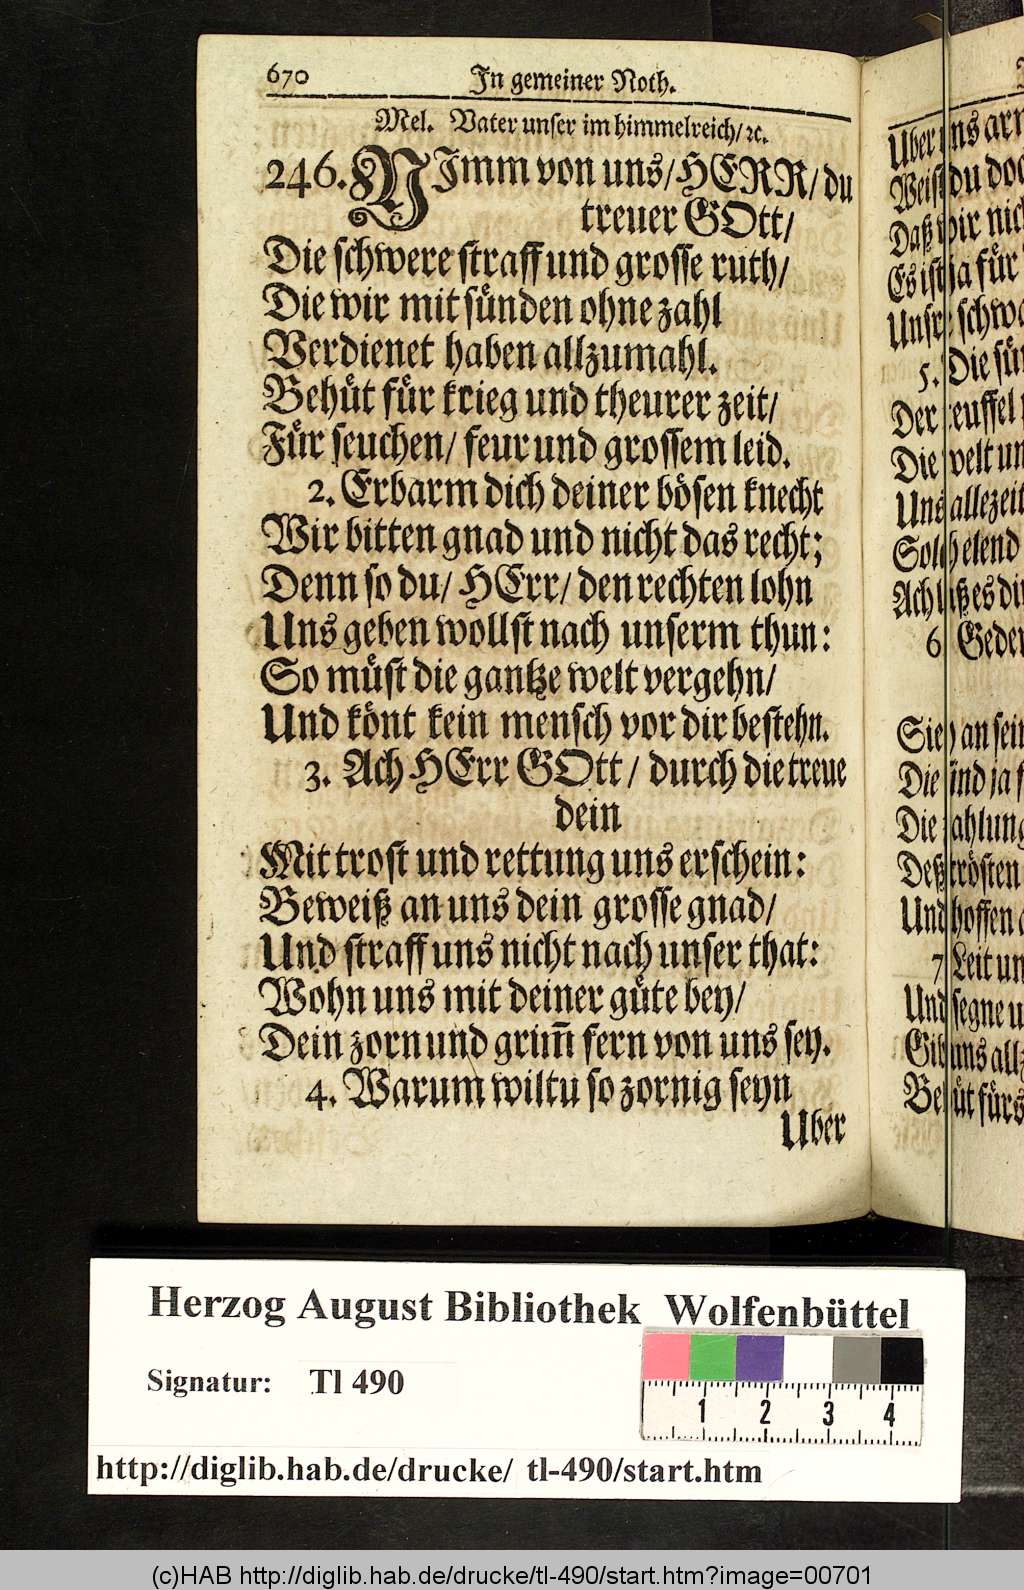 670 In gemeiner Noth.
Mel. Vater unser im himmelreich/ ꝛc.
246. NImm von uns/ HERR/ du
treuer GOtt/
Die schwere straff und grosse ruth/
Die wir mit sünden ohne zahl
Verdienet haben allzumahl.
Behüt für krieg und theurer zeit/
Für seuchen/ feur und grossem leid.
2. Erbarm dich deiner bösen knecht
Wir bitten gnad und nicht das recht;
Denn so du/ HErr/ den rechten lohn
Uns geben wollst nach unserm thun:
So müst die gantze welt vergehn/
Und könt kein mensch vor dir bestehn.
3. Ach HErr GOtt / durch die treue
dein
Mit trost und rettung uns erschein:
Beweiß an uns dein grosse gnad/
Und straff uns nicht nach unser that:
Wohn uns mit deiner güte bey/
Dein zorn und grim̄ fern von uns sey.
4. Warum wiltu so zornig seyn
Uber
Uber uns
Weist du
Daß wir
Es ist ja für
5. Die
Der teuffel
Die welt
Uns allezeit
Solch elend
Ach laß es
6
Sieh an
Die sind ja
Die zahlung
Deß trösten
Und hoffen
7 Leit
Und segne
Gib uns
Behüt fürs
Herzog August Bibliothek Wolfenbüttel
Signatur: Tl 490
1 2 3 4
http://diglib.hab.de/drucke/ tl-490/start.htm
(c)HAB http://diglib.hab.de/drucke/tl-490/start.htm?image=00701